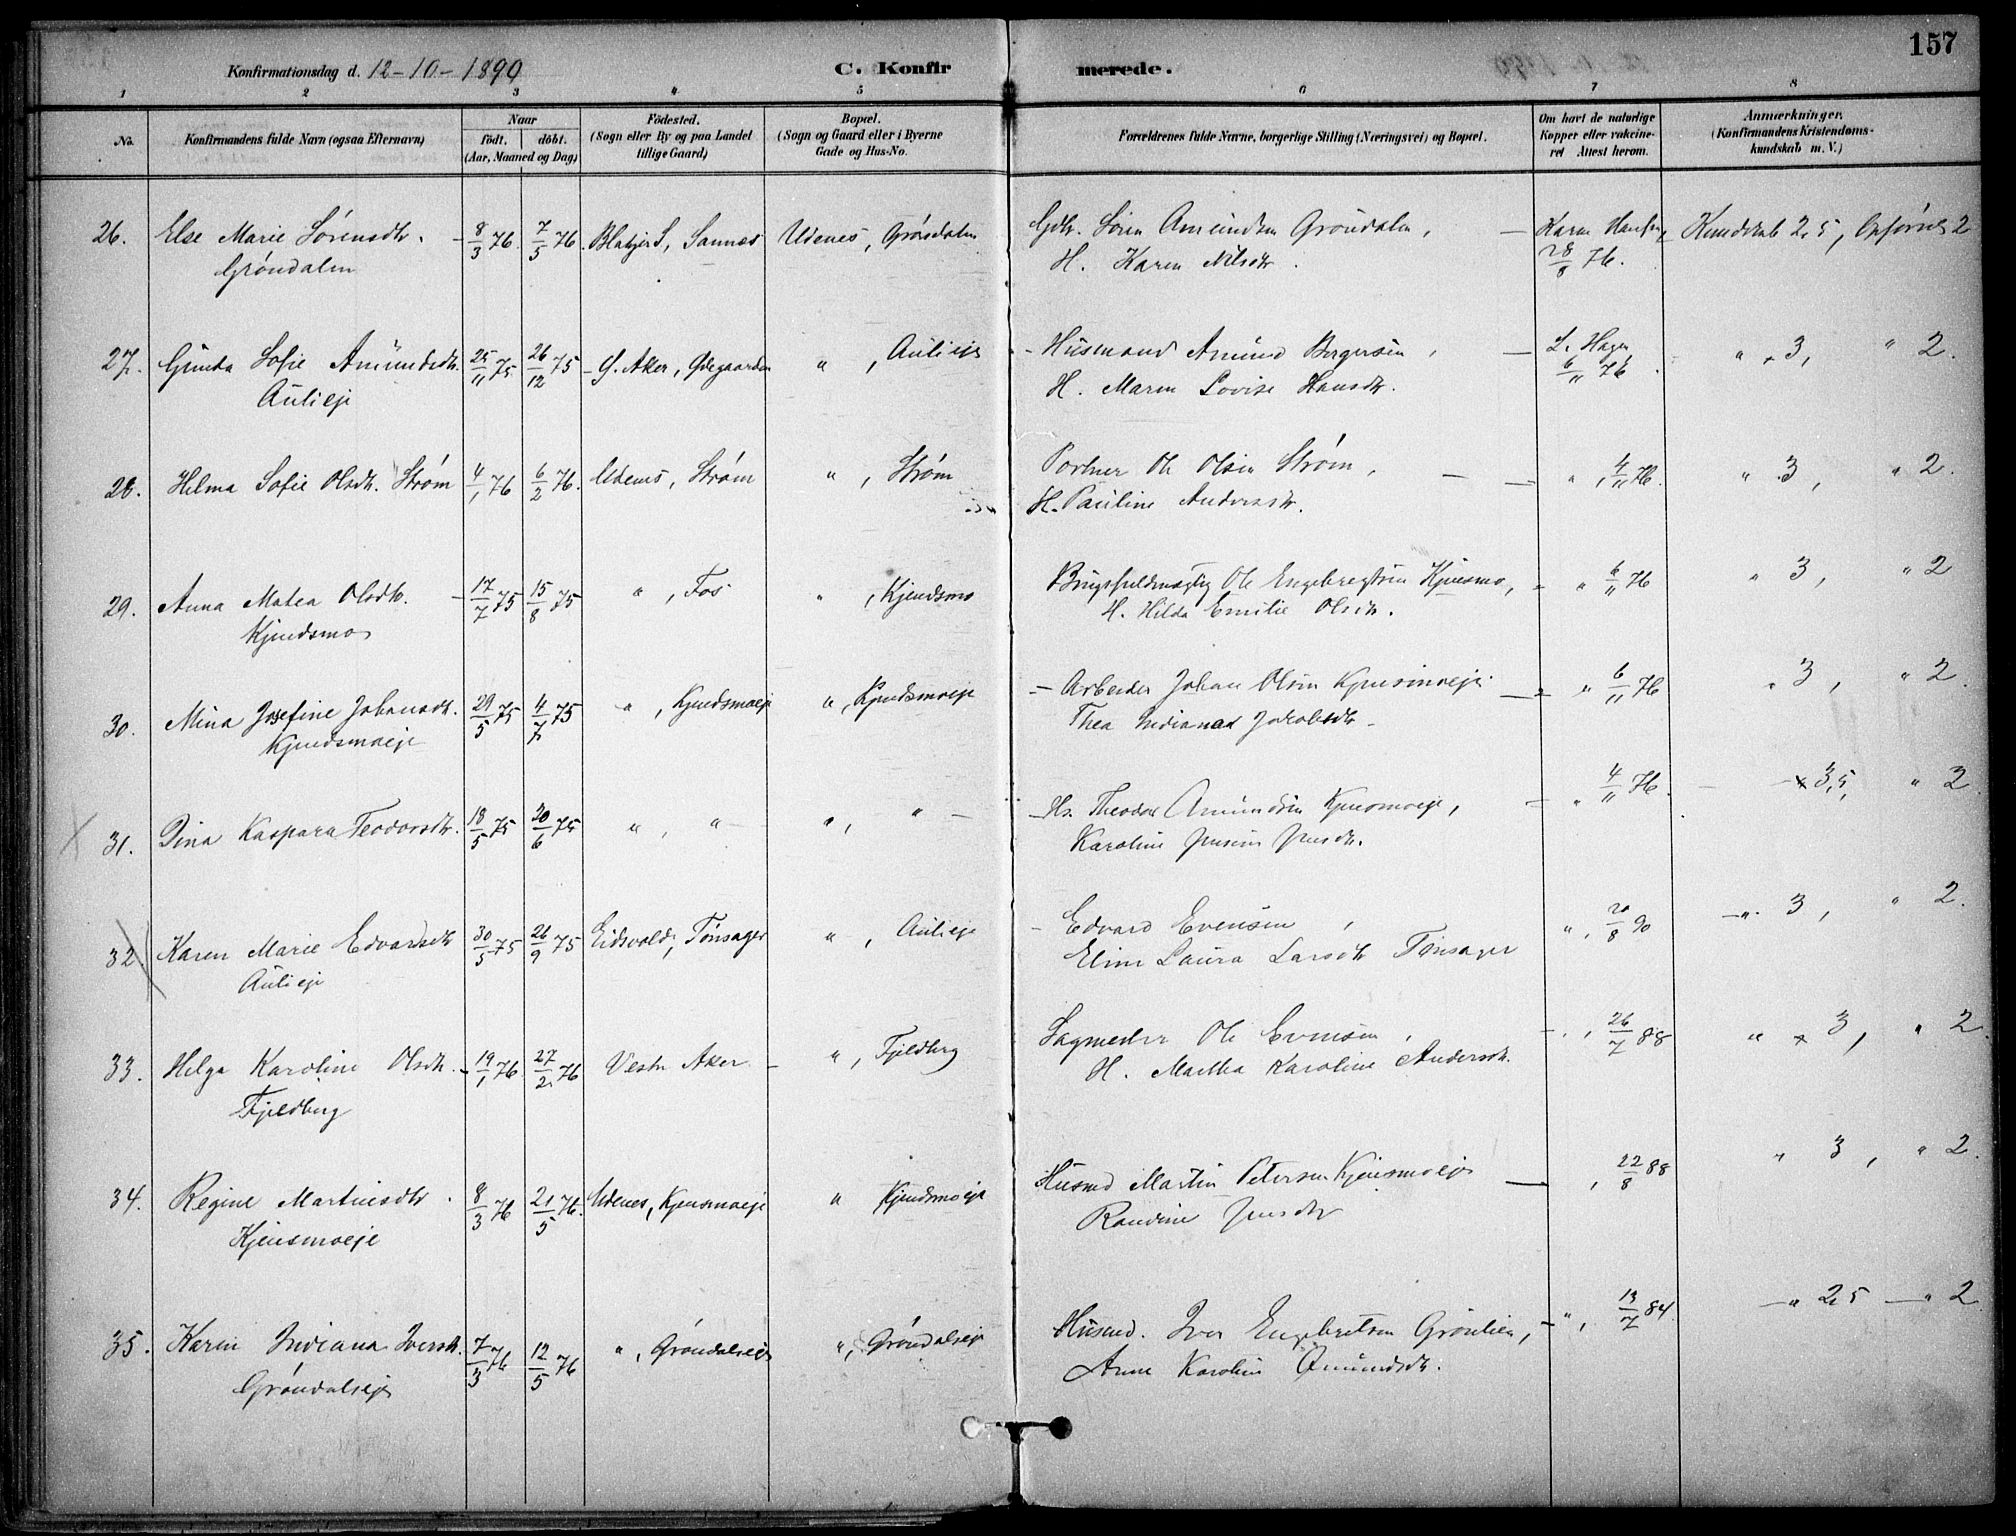 157
Konfirmationsdag d. 12-10-1890
C. Konfir merede.
1 2 3 4 5 6 7 8
No.
Konfirmandens fulde Navn (ogsaa Efternavn)
Naar
födt. döbt.
(Aar, Maaned og Dag)
Födested.
(Sogn eller By og paa Landet
tillige Gaard)
Bopæl.
(Sogn og Gaard eller i Byerne
Gade og Hus-No.
Forældrenes fulde Navne, borgerlige Stilling (Næringsvei) og Bopæl.
Om havt de naturlige
Kopper eller vakcine-
ret Attest herom.
Anmærkninger.
(Konfirmandens Kristendoms-
kundskab m. V.)
26. Else Marie Sørensdtr. 8/3 76. 7/5 76. Blakjer S, Sannes Udenes, Grøndalen Gdbr. Søren Amundsen Grøndalen, Karen Hansen Kundskab 2,5, Opførsel 2
Grøndalen H. Karen Nilsdtr. 28/8 76.
27. Gunda Sofie Amundsdtr. 25/11 75. 26/12 75 G. Aker, Ødegaarden " , Aulieje Husmand Amund Borgersen, L. Hagen " 3, " 2.
Aulieje H. Maren Lovise Hansdtr. 6/11 76.
28. Helma Sofie Olsdtr. Strøm 4/1 76 6/2 76. Udenes, Strøm " , Strøm Portner Ole Olsen Strøm, " , 4/11 76. " 3, " 2.
H. Pauline Andersdtr.
29. Anna Matea Olsdtr. 17/7 75 15/8 75 " , Fos " , Kjendsmo Brugsfuldmægtig Ole Engebregtsen Kjensmo, " 6/11 76 " 3, " 2
Kjendsmo H. Hilda Emilie Olsdtr.
30. Mina Josefine Johansdtr. 29/5 75 4/7 75 " , Kjendsmoeje " , Kjendsmoeje Arbeider Johan Olsen Kjensmoeje " 6/11 76 " 3, " 2.
Kjendsmoeje Thea Indianna Jakobsdtr
31. Dina Kaspara Teodorsdtr. 18/5 75 20/6 75 " , " " , " Hs. Theodor Amundsen Kjensmoeje, " 4/11 76. 3,5, " 2
Karoline Jensine Jensdtr.
32. Karen Marie Edvardsdtr 30/5 75 26/9 75 Eidsvold, Tønsager " , Aulieje Edvard Evensen, " , 20/8 90 " 3, " 2.
Aulieje Eline Laura Larsdtr Tønsager
33. Helga Karoline Olsdtr. 19/1 76. 27/2 76 Vestre Aker " , Fjeldberg Sagmester Ole Evensen, " , 26/7 88 " 3, " 2
Fjeldberg H. Martha Karoline Andersdtr.
34. Regine Martinsdtr. 8/3 76 21/5 76. Udenes, Kjensmoeje " Kjendsmoeje Husmd Martin Petersen Kjensmoeje , 22/8 88 " 3, " 2.
Kjensmoeje Randine Jensdtr
35. Karen Indiana Iversdtr. 7/3 76 12/5 76 " , Grøndalseje " , Grøndalseje Husmd. Iver Engebretsen Grønlien, " , 13/7 84 " 2,5 " 2
Grøndalseje Anne Karoline Amundsdtr.